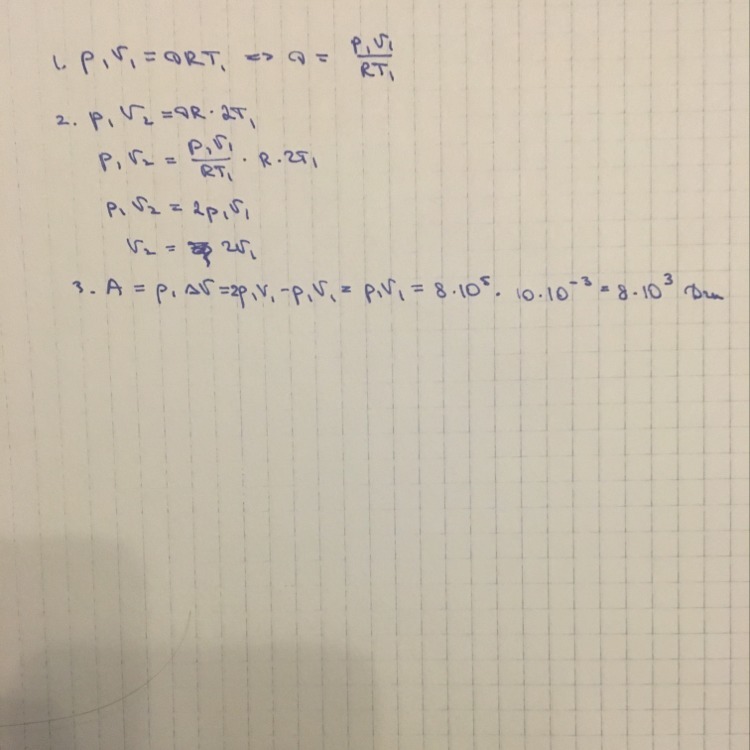 1. p₁V₁ = νRT₁ => ν = p₁V₁/RT₁
2. p₁V₂ = νR · 2T₁
p₁V₂ = p₁V₁/RT₁ · R · 2T₁
p₁V₂ = 2p₁V₁
V₂ = 2V₁
3. A = p₁ΔV = 2p₁V₁ - p₁V₁ = p₁V₁ = 8·10⁵ · 10·10⁻³ = 8·10³ Дж